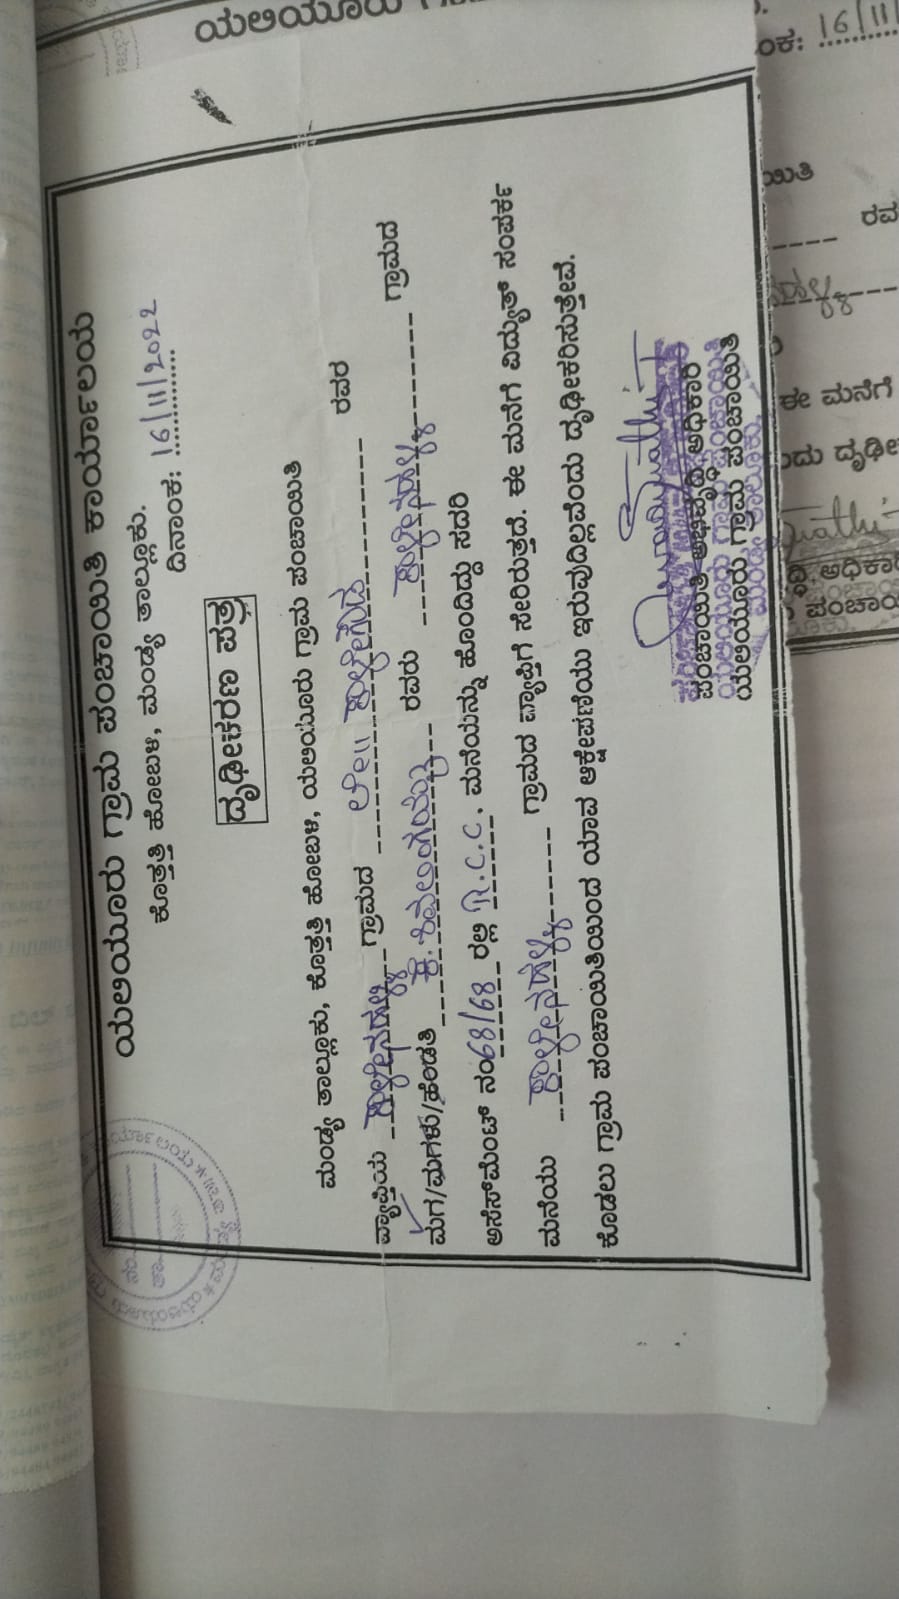 ಯಲಿಯೂರು ಗ್ರಾಮ ಪಂಚಾಯಿತಿ ಕಾರ್ಯಾಲಯ
ಕೊತ್ತತ್ತಿ ಹೋಬಳಿ, ಮಂಡ್ಯ ತಾಲ್ಲೂಕು.
ದಿನಾಂಕ: 16/11/2022
ದೃಢೀಕರಣ ಪತ್ರ
ಮಂಡ್ಯ ತಾಲ್ಲೂಕು, ಕೊತ್ತತ್ತಿ ಹೋಬಳಿ, ಯಲಿಯೂರು ಗ್ರಾಮ ಪಂಚಾಯಿತಿ
ವ್ಯಾಪ್ತಿಯ ಕಾಳೇನಹಳ್ಳಿ ಗ್ರಾಮದ ಲೇ॥ ಕಾಳೇಗೌಡ ರವರ
ಮಗ/ಮಗಳು/ಹೆಂಡತಿ ಕೆ.ಶಿವಲಿಂಗಯ್ಯ ರವರು ಕಾಳೇನಹಳ್ಳಿ ಗ್ರಾಮದ
ಅಸೆಸ್‌ಮೆಂಟ್ ನಂ 68/68 ರಲ್ಲಿ R.C.C. ಮನೆಯನ್ನು ಹೊಂದಿದ್ದು ಸದರಿ
ಮನೆಯು ಕಾಳೇನಹಳ್ಳಿ ಗ್ರಾಮದ ವ್ಯಾಪ್ತಿಗೆ ಸೇರಿರುತ್ತದೆ. ಈ ಮನೆಗೆ ವಿದ್ಯುತ್ ಸಂಪರ್ಕ
ಕೊಡಲು ಗ್ರಾಮ ಪಂಚಾಯಿತಿಯಿಂದ ಯಾವ ಆಕ್ಷೇಪಣೆಯು ಇರುವುದಿಲ್ಲವೆಂದು ದೃಢೀಕರಿಸುತ್ತೇವೆ.
ಪಂಚಾಯಿತಿ ಅಭಿವೃದ್ಧಿ ಅಧಿಕಾರಿ
ಯಲಿಯೂರು ಗ್ರಾಮ ಪಂಚಾಯಿತಿ
ಯಲಿಯೂರು ಗ್ರಾಮ ಪಂಚಾಯಿತಿ
ಮಂಡ್ಯ ತಾಲೂಕು
ಯಲಿಯೂರು
16/11
ರವ
ಈ ಮನೆಗೆ
ಅಧಿಕಾರಿ